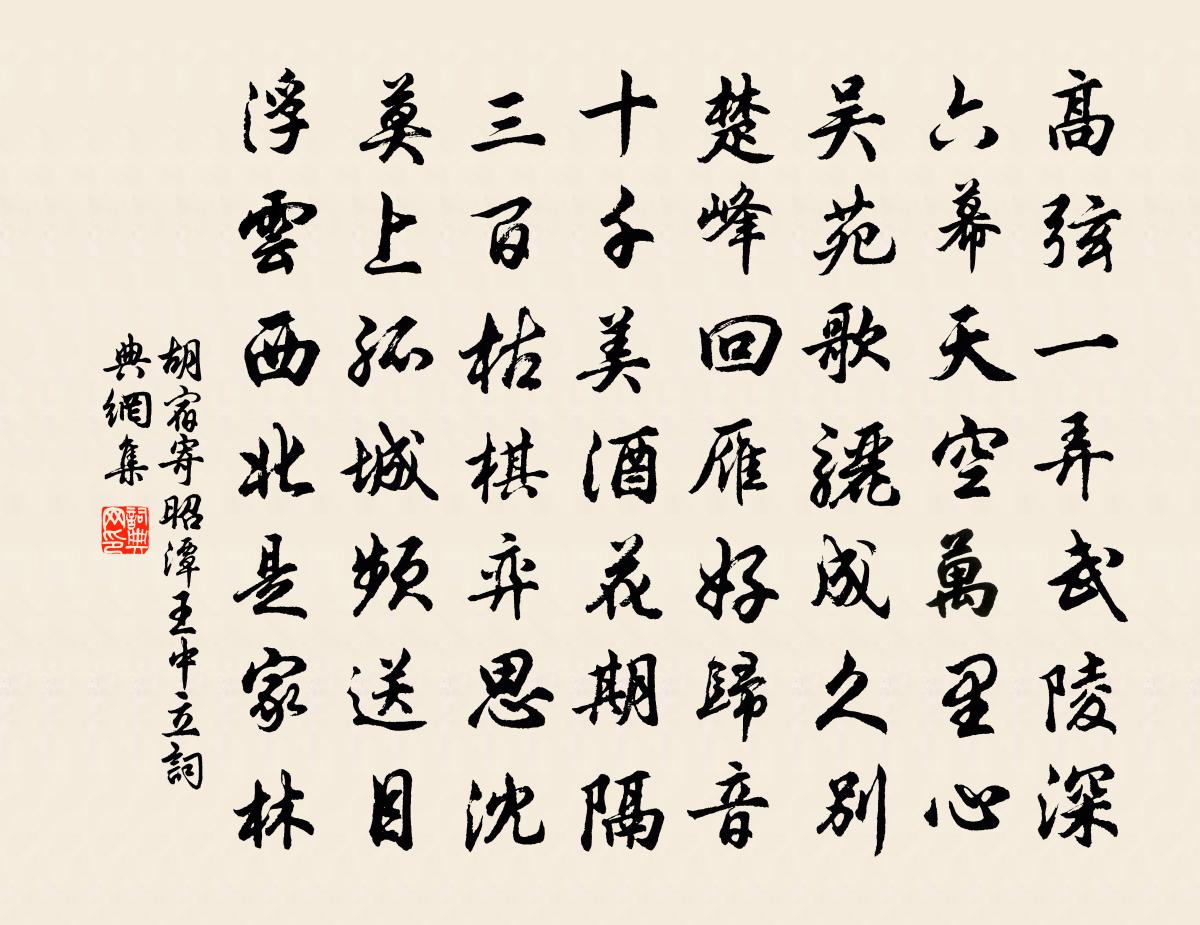 高弦一弄武陵深
六幕天空萬里心
吴苑歌驪成久别
楚峰回雁好歸音
十千美酒花期隔
三百枯棋弈思沈
莫上孤城頻送目
浮雲西北是家林
胡宿寄昭潭王中立詞
典網集
詞典网印